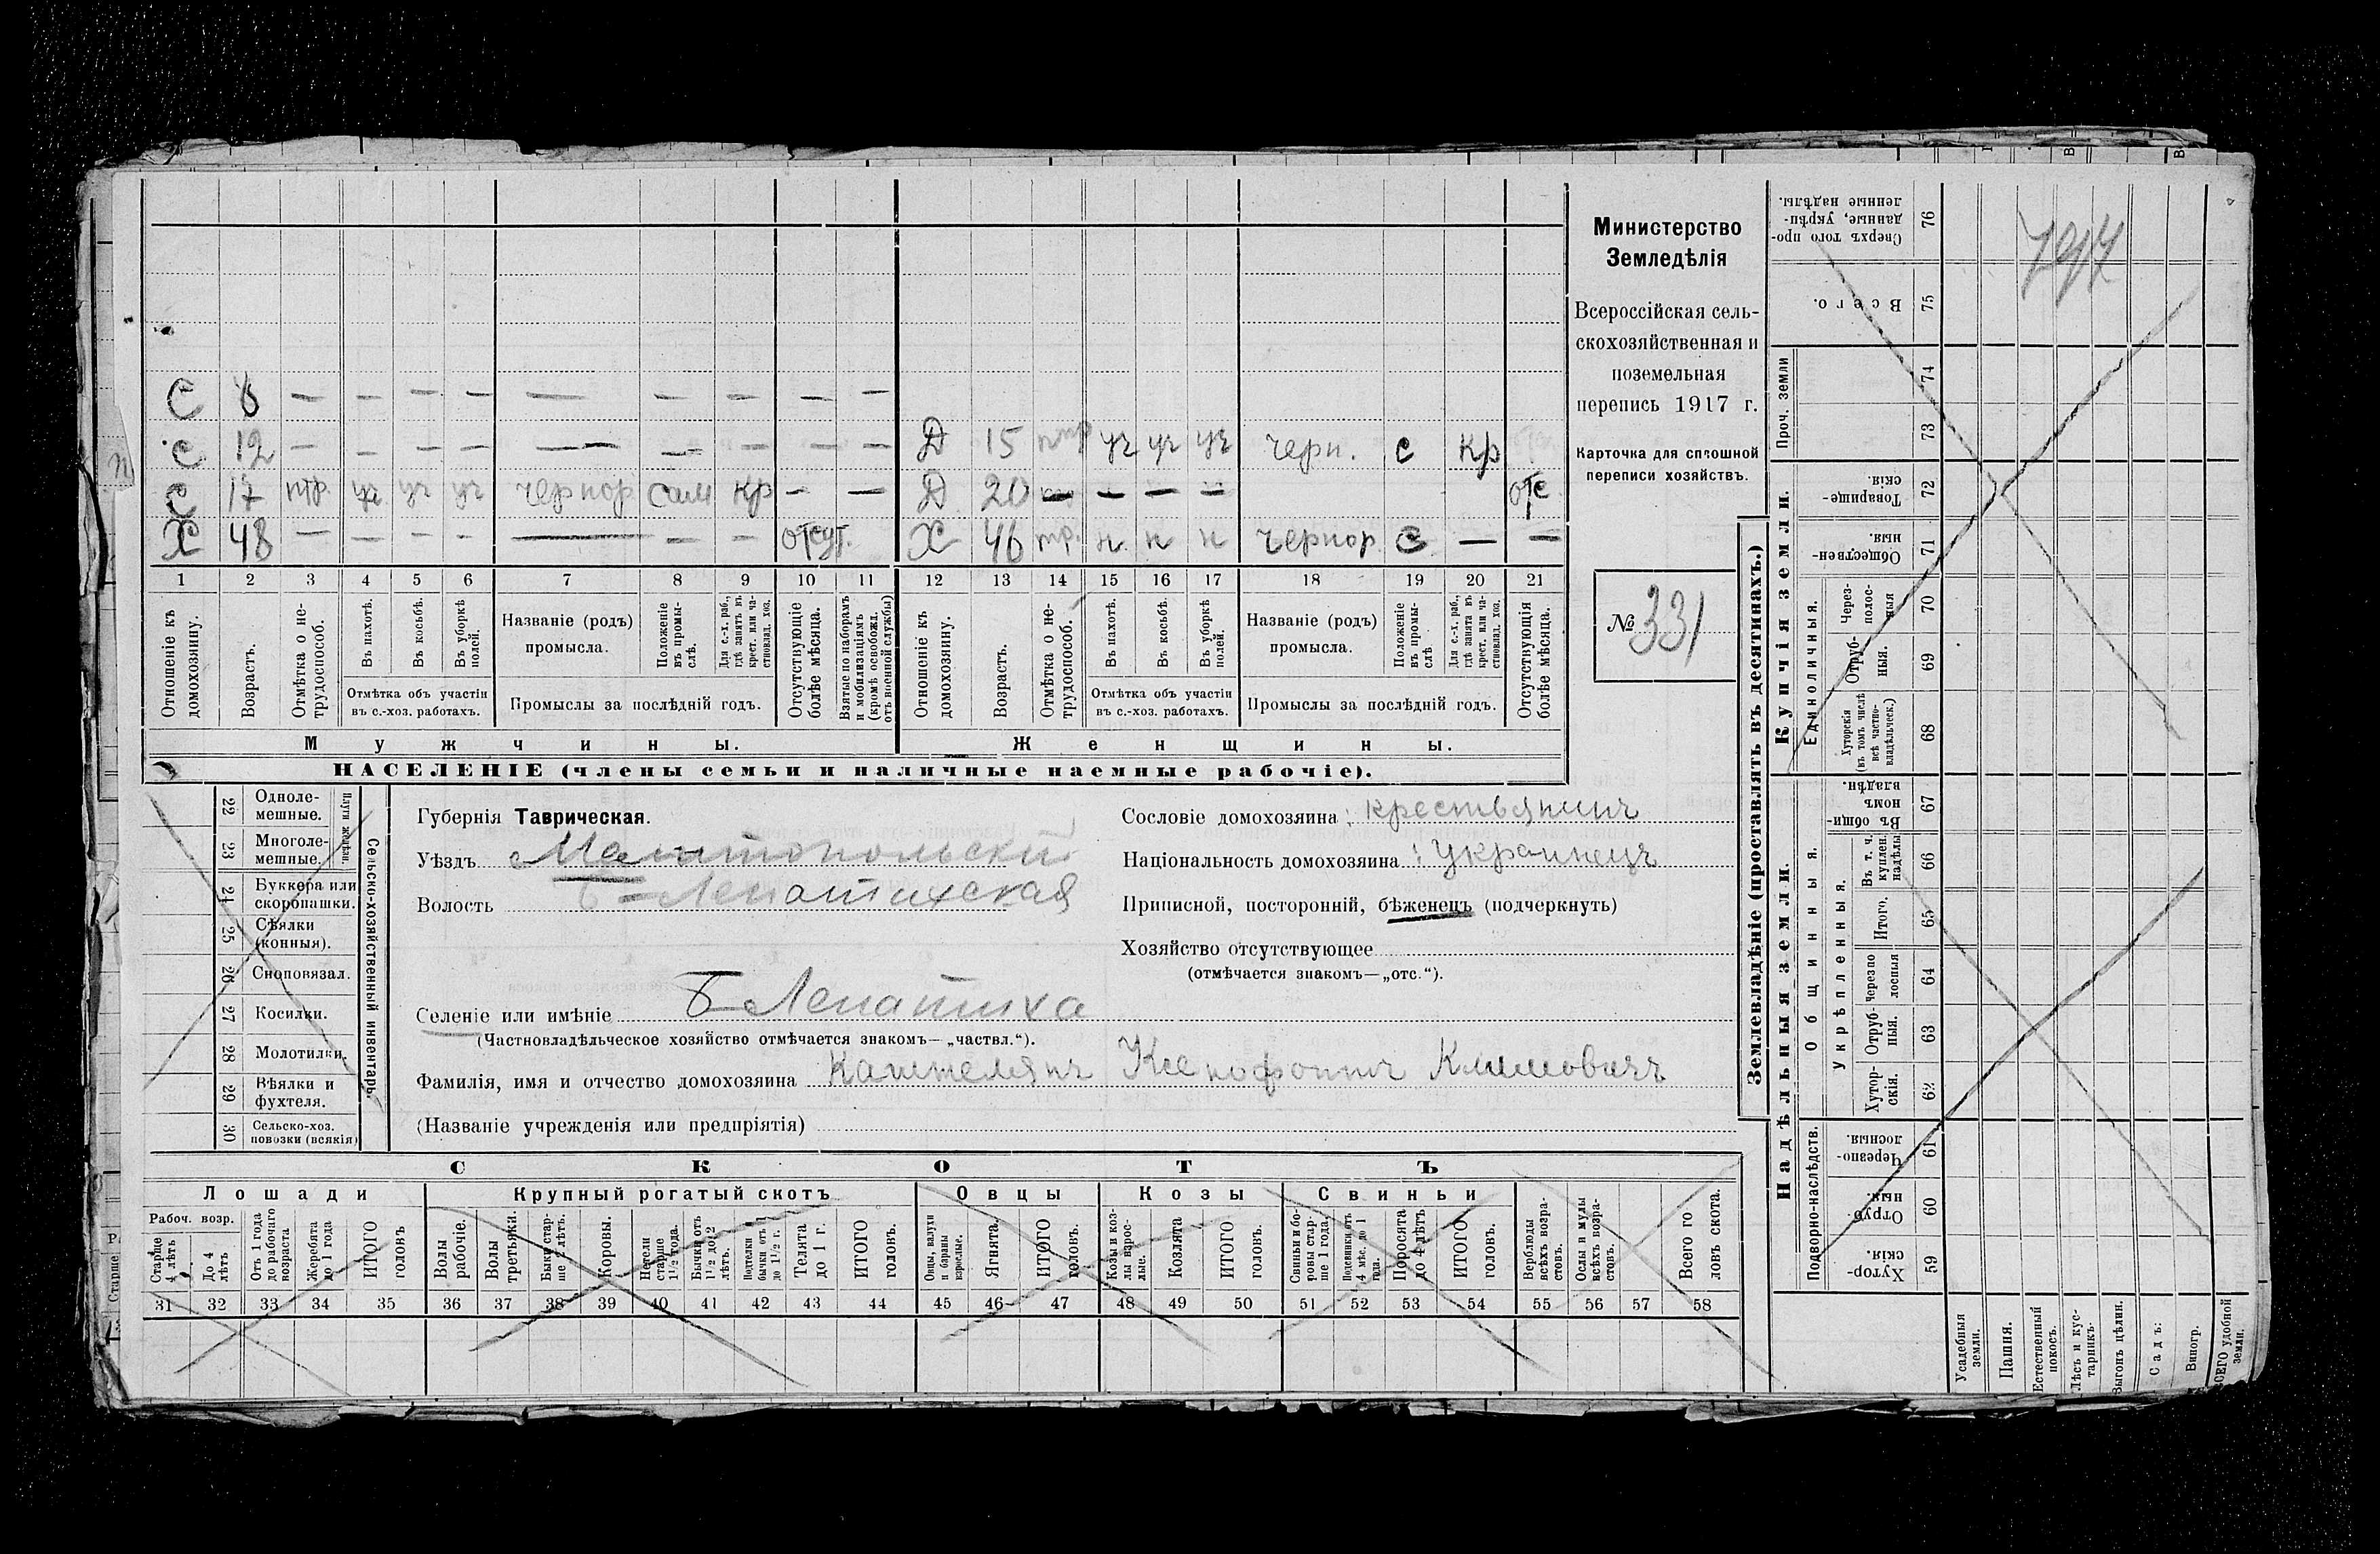 С 8 — — — — — — — — —
С 12 — — — — — — — — — Д 15 уч уч уч черн. с кр
С 17 птр. уч уч уч чернор. сам кр — — Д 20 — — — — отс
Х 48 — — — — — — — отсут. — Х 46 тр. н н н чернор с — —
1 2 3 4 5 6 7 8 9 10 11 12 13 14 15 16 17 18 19 20 21
Отношеніе къ домохозяину.
Возрастъ.
Отмѣтка о нетрудоспособ.
Въ пахотѣ.
Въ косьбѣ.
Въ уборкѣ полей.
Отмѣтка объ участіи
въ с.-хоз. работахъ.
Названіе (родъ)
промысла.
Положеніе въ промыслѣ.
Для с.-х. раб., гдѣ занятъ въ крест. или частновлад. хоз.
Промыслы за послѣдній годъ.
Отсутствующіе болѣе мѣсяца.
Взятые по наборамъ и мобилизаціямъ (кромѣ освобожд. отъ военной службы)
Отношеніе къ домохозяину.
Возрастъ.
Отмѣтка о нетрудоспособ.
Въ пахотѣ.
Въ косьбѣ.
Въ уборкѣ полей.
Отмѣтка объ участіи
въ с.-хоз. работахъ.
Названіе (родъ)
промысла.
Положеніе въ промыслѣ
Для с.-х. раб., гдѣ занята въ крест. или частновлад. хоз.
Промыслы за послѣдній годъ.
Отсутствующія болѣе мѣсяца.
Мужчины. Женщины.
НАСЕЛЕНІЕ (члены семьи и наличные наемные рабочіе).
Министерство
Земледѣлія
Всероссійская сель-
скохозяйственная и
поземельная
перепись 1917 г.
Карточка для сплошной
переписи хозяйствъ.
№ 331
Сельско-хозяйственный инвентарь.
Плуги желѣзн.
22 Одноле-
мешные.
23 Многоле-
мешные.
24 Буккера или
скоропашки.
25 Сѣялки
(конныя).
26 Сноповязал.
27 Косилки.
28 Молотилки.
29 Вѣялки и
фухтеля.
30 Сельско-хоз.
повозки (всякія)
Губернія Таврическая.
Уѣздъ Мелитопольскій
Волость Б-Лепатихская
Селеніе или имѣніе Б Лепатиха
(Частновладѣльческое хозяйство отмѣчается знакомъ—„частвл.“).
Фамилія, имя и отчество домохозяина Каштелянъ Ксенофонтъ Климовичъ
(Названіе учрежденія или предпріятія)
Сословіе домохозяина: крестьянинъ
Національность домохозяина: Украинецъ
Приписной, посторонній, бѣженецъ (подчеркнуть)
Хозяйство отсутствующее
(отмѣчается знакомъ—„отс.“).
СКОТЪ
Лошади
Рабоч. возр.
Старше 4 лѣтъ
До 4 лѣтъ
Отъ 1 года до рабочаго возраста
Жеребята до 1 года
ИТОГО головъ
Крупный рогатый скотъ
Волы рабочіе.
Волы третьяки.
Быки старше 2 лѣтъ.
Коровы.
Нетели старше 1 1/2 года.
Бычки отъ 1 1/2 до 2 лѣтъ.
Подтелки бычки отъ 1 до 1 1/2 г.
Телята до 1 г.
ИТОГО головъ.
Овцы
Овцы, валухи и бараны взрослые.
Ягнята.
ИТОГО головъ.
Козы
Козы и козлы взрослые.
Козлята
ИТОГО головъ.
Свиньи
Свиньи и боровы старше 1 года.
Подсвинки отъ 4 мѣс. до 1 года.
Поросята до 4 лѣтъ
ИТОГО головъ.
Верблюды всѣхъ возрастовъ.
Ослы и мулы всѣхъ возрастовъ.
Всего головъ скота.
31 32 33 34 35 36 37 38 39 40 41 42 43 44 45 46 47 48 49 50 51 52 53 54 55 56 57 58
Землевладѣніе (проставлять въ десятинахъ.)
Купчія земли.
Сверхъ того проданные, укрѣпленные надѣлы. 76
Всего. 75
Проч. земли 74
73
Товарищескія. 72
Общественныя. 71
Единоличныя.
Черезполосныя 70
Отрубныя. 69
Хуторскія (въ томъ числѣ всѣ частновладѣльческ.) 68
Надѣльныя земли.
Общинныя.
Въ общинномъ владѣн. 67
Укрѣпленныя.
Въ т. ч. куплен. надѣлы 66
Итого. 65
Черезполосныя 64
Отрубныя. 63
Хуторскія. 62
Подворно-наслѣдств.
Черезполосныя. 61
Отрубныя. 60
Хуторскія. 59
Усадебныя земли.
Пашня.
Естественный покосъ.
Лѣсъ и кустарникъ.
Выгонъ цѣлин.
Садъ:
Виногр.
ВСЕГО удобной земли.